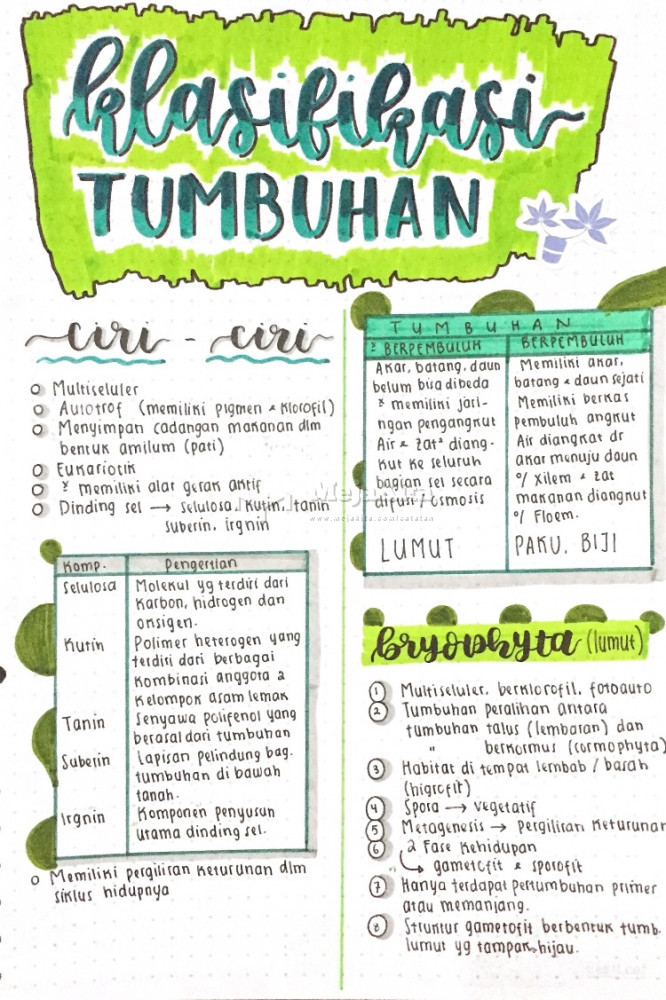 klasifikasi
TUMBUHAN
ciri - ciri
Multiseluler
Autotrof (memiliki pigmen & klorofil)
Menyimpan cadangan makanan dlm
bentuk amilum (pati)
Eukariotik
memiliki alat gerak aktif
Dinding sel → selulosa, kutin, tanin
suberin, irgnin
Komp. Pengertian
Selulosa Molekul yg terdiri dari
karbon, hidrogen dan
oksigen.
Kutin Polimer heterogen yang
terdiri dari berbagai
kombinasi anggota 2
kelompok asam lemak
Tanin Senyawa polifenol yang
berasal dari tumbuhan
Suberin Lapisan pelindung bag.
tumbuhan di bawah
tanah.
Irgnin Komponen penyusun
utama dinding sel.
Memiliki pergiliran keturunan dlm
siklus hidupnya
TUMBUHAN
BERPEMBULUH
Akar, batang, daun
belum bisa dibeda
memiliki jari-
ngan pengangkut
Air & zat² diang-
kut ke seluruh
bagian sel secara
difusi / osmosis
LUMUT
BERPEMBULUH
Memiliki akar,
batang & daun sejati
Memiliki berkas
pembuluh angkut
Air diangkat dr
akar menuju daun
o/ Xilem & zat
makanan diangkut
o/ Floem.
PAKU, BIJI
Mejakita
www.mejakita.com/catatan
bryophyta (lumut)
1 Multiseluler, berklorofil, fotoauto
2 Tumbuhan peralihan antara
tumbuhan talus (lembaran) dan
" berkormus (cormophyta)
3 Habitat di tempat lembab / basah
(higrofit)
4 Spora → vegetatif
5 Metagenesis → Pergiliran keturunan
6 2 Fase kehidupan
↳ gametofit & sporofit
7 Hanya terdapat pertumbuhan primer
atau memanjang.
8 Struktur gametofit berbentuk tumb.
lumut yg tampak hijau.